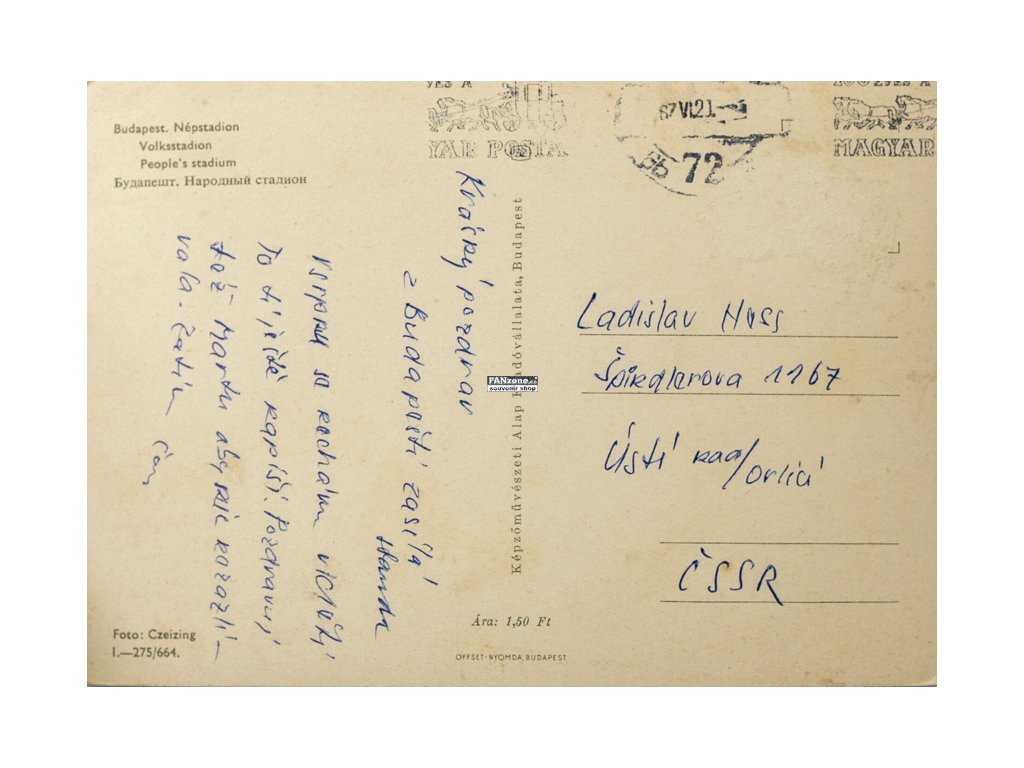 Budapest. Népstadion
Volksstadion
People's stadium
Будапешт. Народный стадион
VES A
YAR POSTA
67 VI.21.
72
100 ÉVES A
MAGYAR
Krásný pozdrav
z Budapešti zasílá
Standa
Vstupnu sa nechám
To ti ještě napíši. Pozdravuj
též Martu aby nic nozazlí-
vala. Zatím
Čau
Képzőművészeti Alap Kiadóvállalata, Budapest
FANzone.cz
souvenir shop
Ladislav Huss
Špindlerova 1167
Ústí nad/Orlicí
ČSSR
Foto: Czeizing
I.—275/664.
Ára: 1,50 Ft
OFFSET-NYOMDA, BUDAPEST